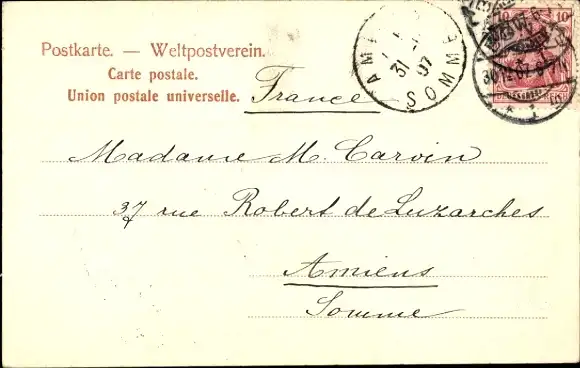 Postkarte. — Weltpostverein.
Carte postale.
Union postale universelle.
France
SOMME
31
07
10 10
Madame M. Carvin
37 rue Robert de Luzarches
Amiens
Somme